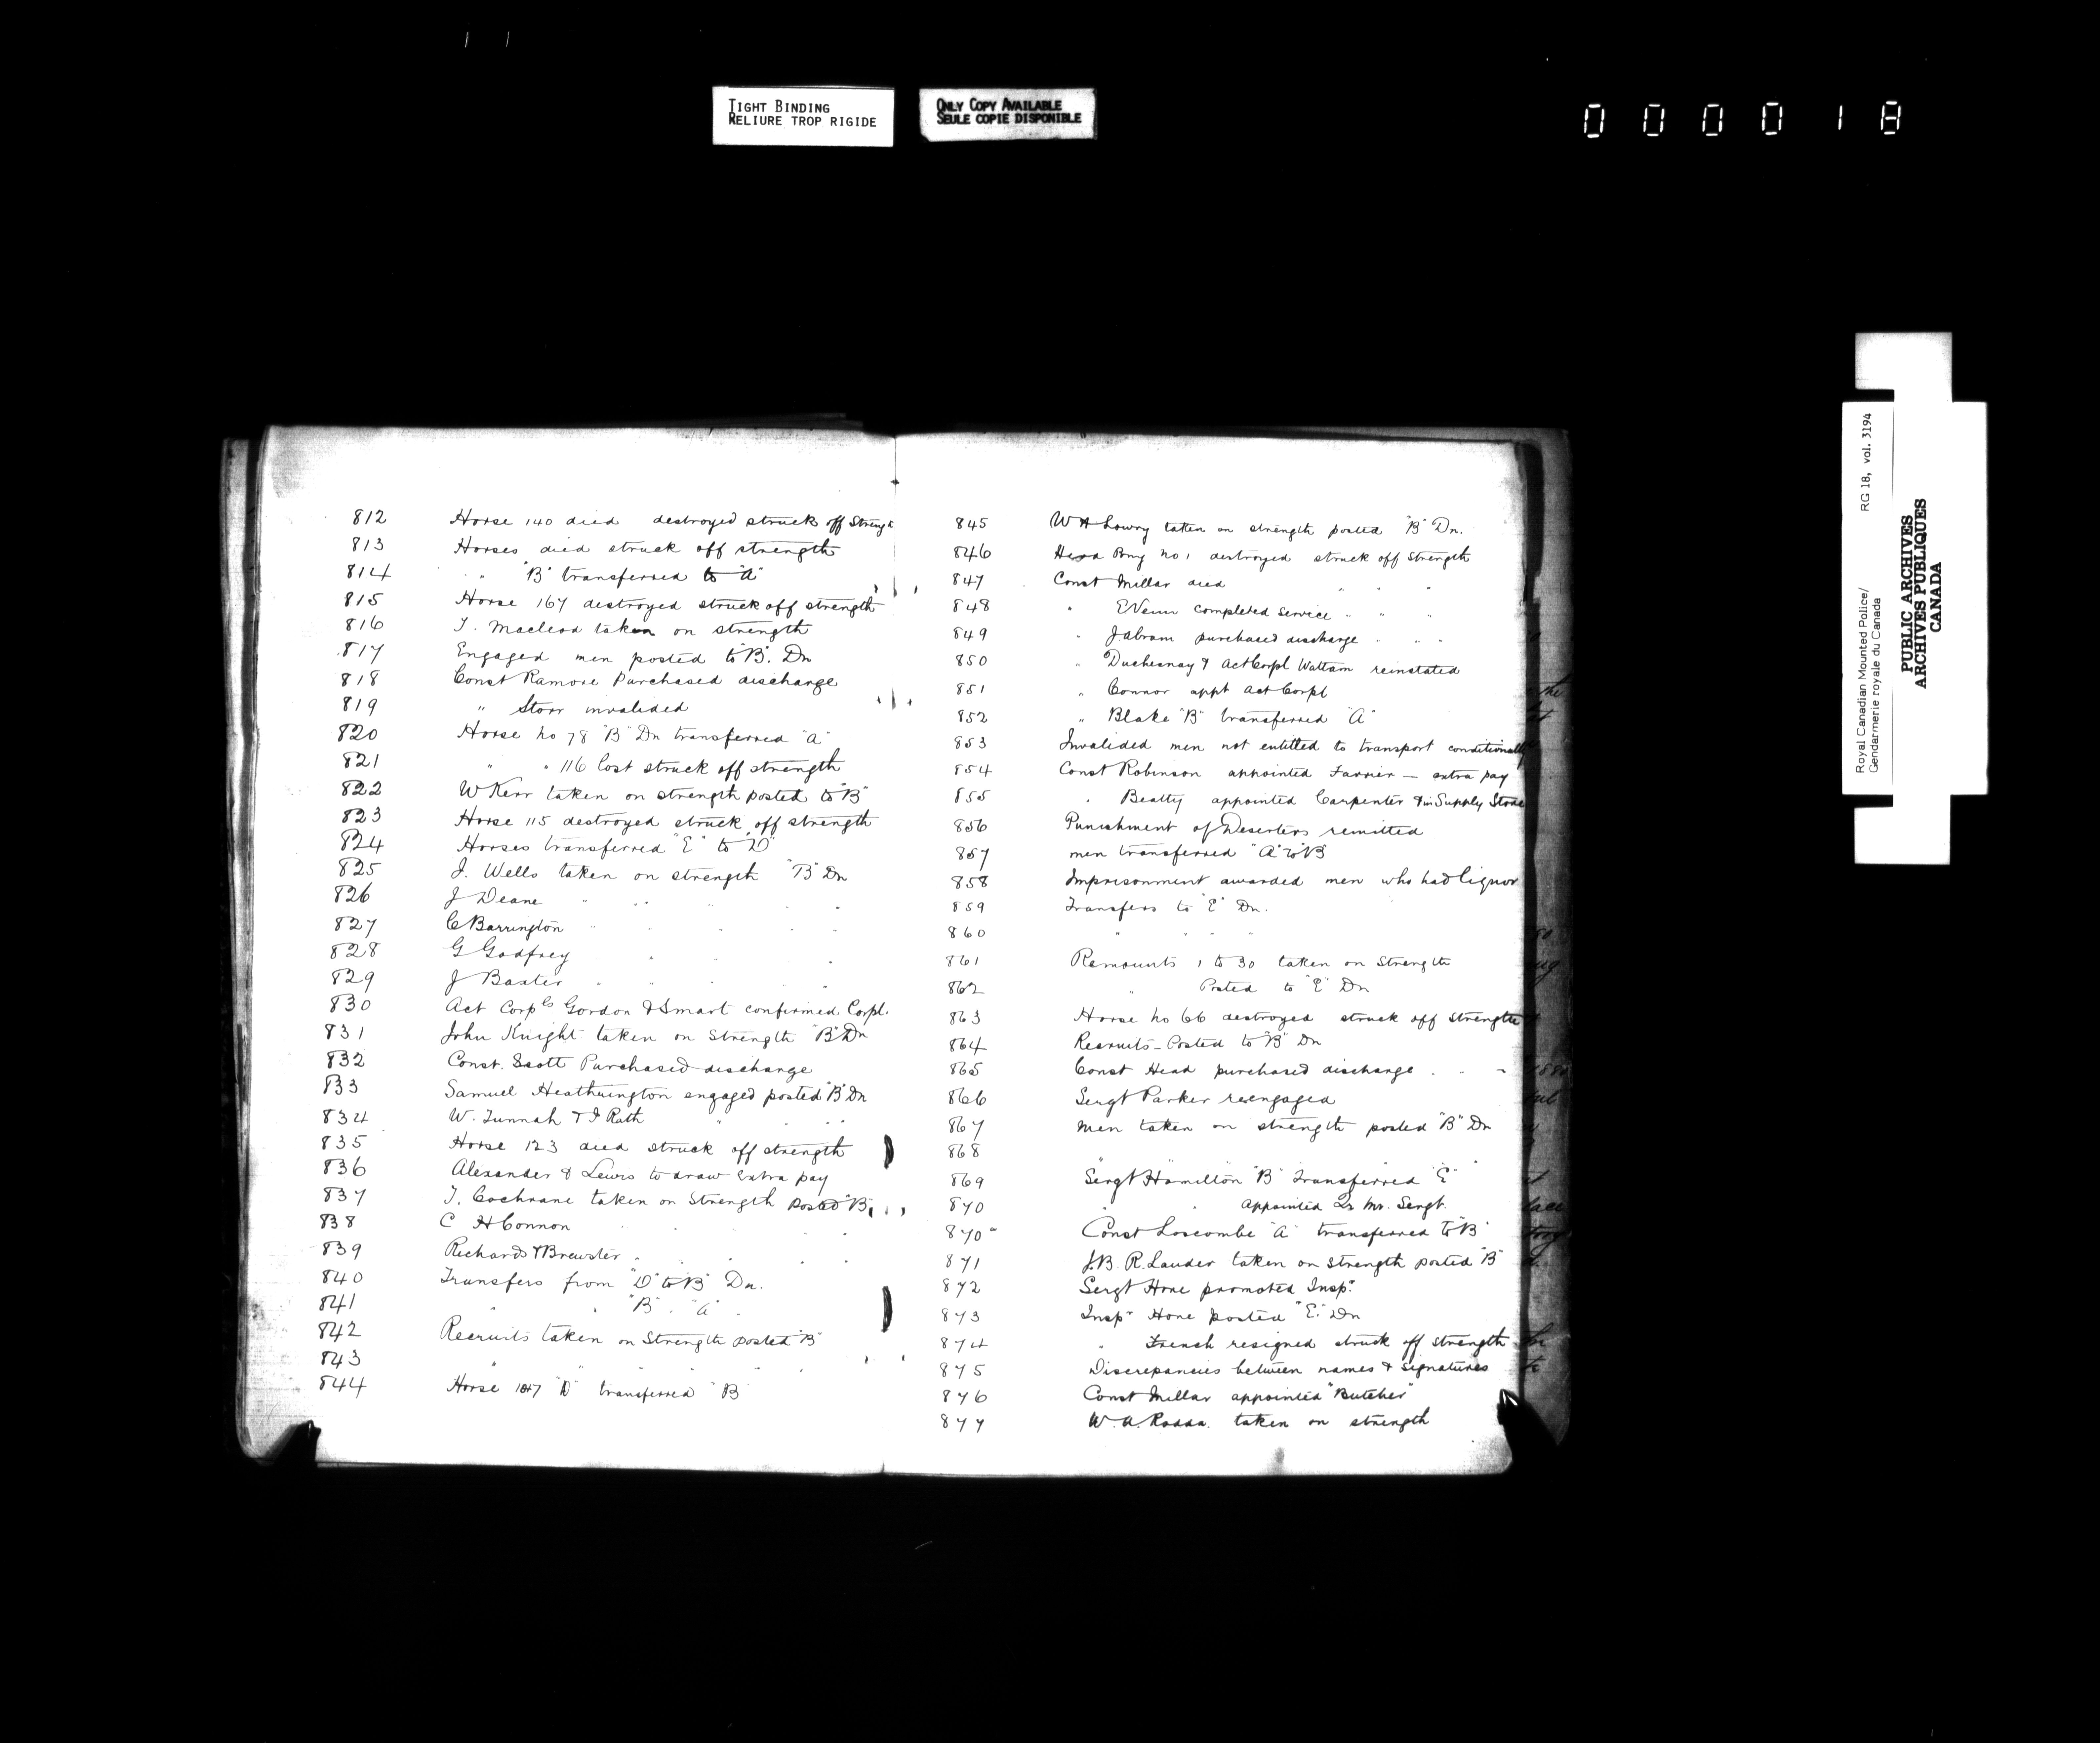 TIGHT BINDING
RELIURE TROP RIGIDE
ONLY COPY AVAILABLE
SEULE COPIE DISPONIBLE
000018
812 Horse 140 died destroyed struck off Streng
813 Horses died struck off strength
814 " "B" transferred to "A"
815 Horse 167 destroyed struck off strength
816 T. Macleod taken on strength
817 Engaged men posted to "B". Dn
818 Const Ramore Purchased discharge
819 " Storr invalided
820 Horse No 78 "B" Dn transferred "A"
821 " " 116 lost struck off strength
822 W Kerr taken on strength posted to "B"
823 Horse 115 destroyed struck off strength
824 Horses transferred "E" to "D"
825 J. Wells taken on strength "B" Dn
826 J Deane " " " " "
827 C Barrington " " " " "
828 G Godfrey " "
829 J Baxter " " " "
830 Act Corpls Gordon & Smart confirmed Corpl.
831 John Knight taken on Strength "B" Dn
832 Const. Scott Purchased discharge
833 Samuel Heatherington engaged posted "B" Dn
834 W. Tunnah & J Rath " " "
835 Horse 123 died struck off strength
836 Alexander & Lewis to draw extra pay
837 T. Cochrane taken on Strength posted "B"
838 C H Connon " "
839 Richards & Brewster " " " "
840 Transfers from "D" to "B" Dn.
841 " " "B" " "A" "
842 Recruits taken on Strength posted "B"
843 " " " "
844 Horse 1047 "D" transferred "B"
845 W A Lowry taken on strength posted "B" Dn.
846 Herd Pony No 1 destroyed struck off Strength
847 Const Millar died " " "
848 " E Venn completed service " " "
849 " J Abram purchased discharge " " "
850 " Duchesnay & Act Corpl Wattam reinstated
851 " Connor appt Act Corpl
852 " Blake "B" transferred "A"
853 Invalided men not entitled to transport conditionally
854 Const Robinson appointed Farrier — extra pay
855 " Beatty appointed Carpenter & in Supply Store
856 Punishment of Deserters remitted
857 men transferred "A" to "B"
858 Imprisonment awarded men who had liquor
859 Transfers to "E" Dn.
860 " " " "
861 Remounts 1 to 30 taken on Strength
862 " Posted to "E" Dn
863 Horse No 66 destroyed struck off Strength
864 Recruits - Posted to "B" Dn
865 Const Head purchased discharge " " "
866 Sergt Parker reengaged
867 Men taken on strength posted "B" Dn
868 " "
869 Sergt Hamilton "B" Transferred "E"
870 " " appointed Qr Mr. Sergt.
870a Const Loscombe "A" transferred to "B"
871 J. B. R. Lauder taken on Strength posted "B"
872 Sergt Hone promoted Inspr.
873 Inspr Hone posted "E" Dn
874 " French resigned struck off strength
875 Discrepancies between names & signatures
876 Const Millar appointed "Butcher"
877 W. A. Rodda. taken on strength
Royal Canadian Mounted Police/
Gendarmerie royale du Canada
RG 18, vol. 3194
PUBLIC ARCHIVES
ARCHIVES PUBLIQUES
CANADA